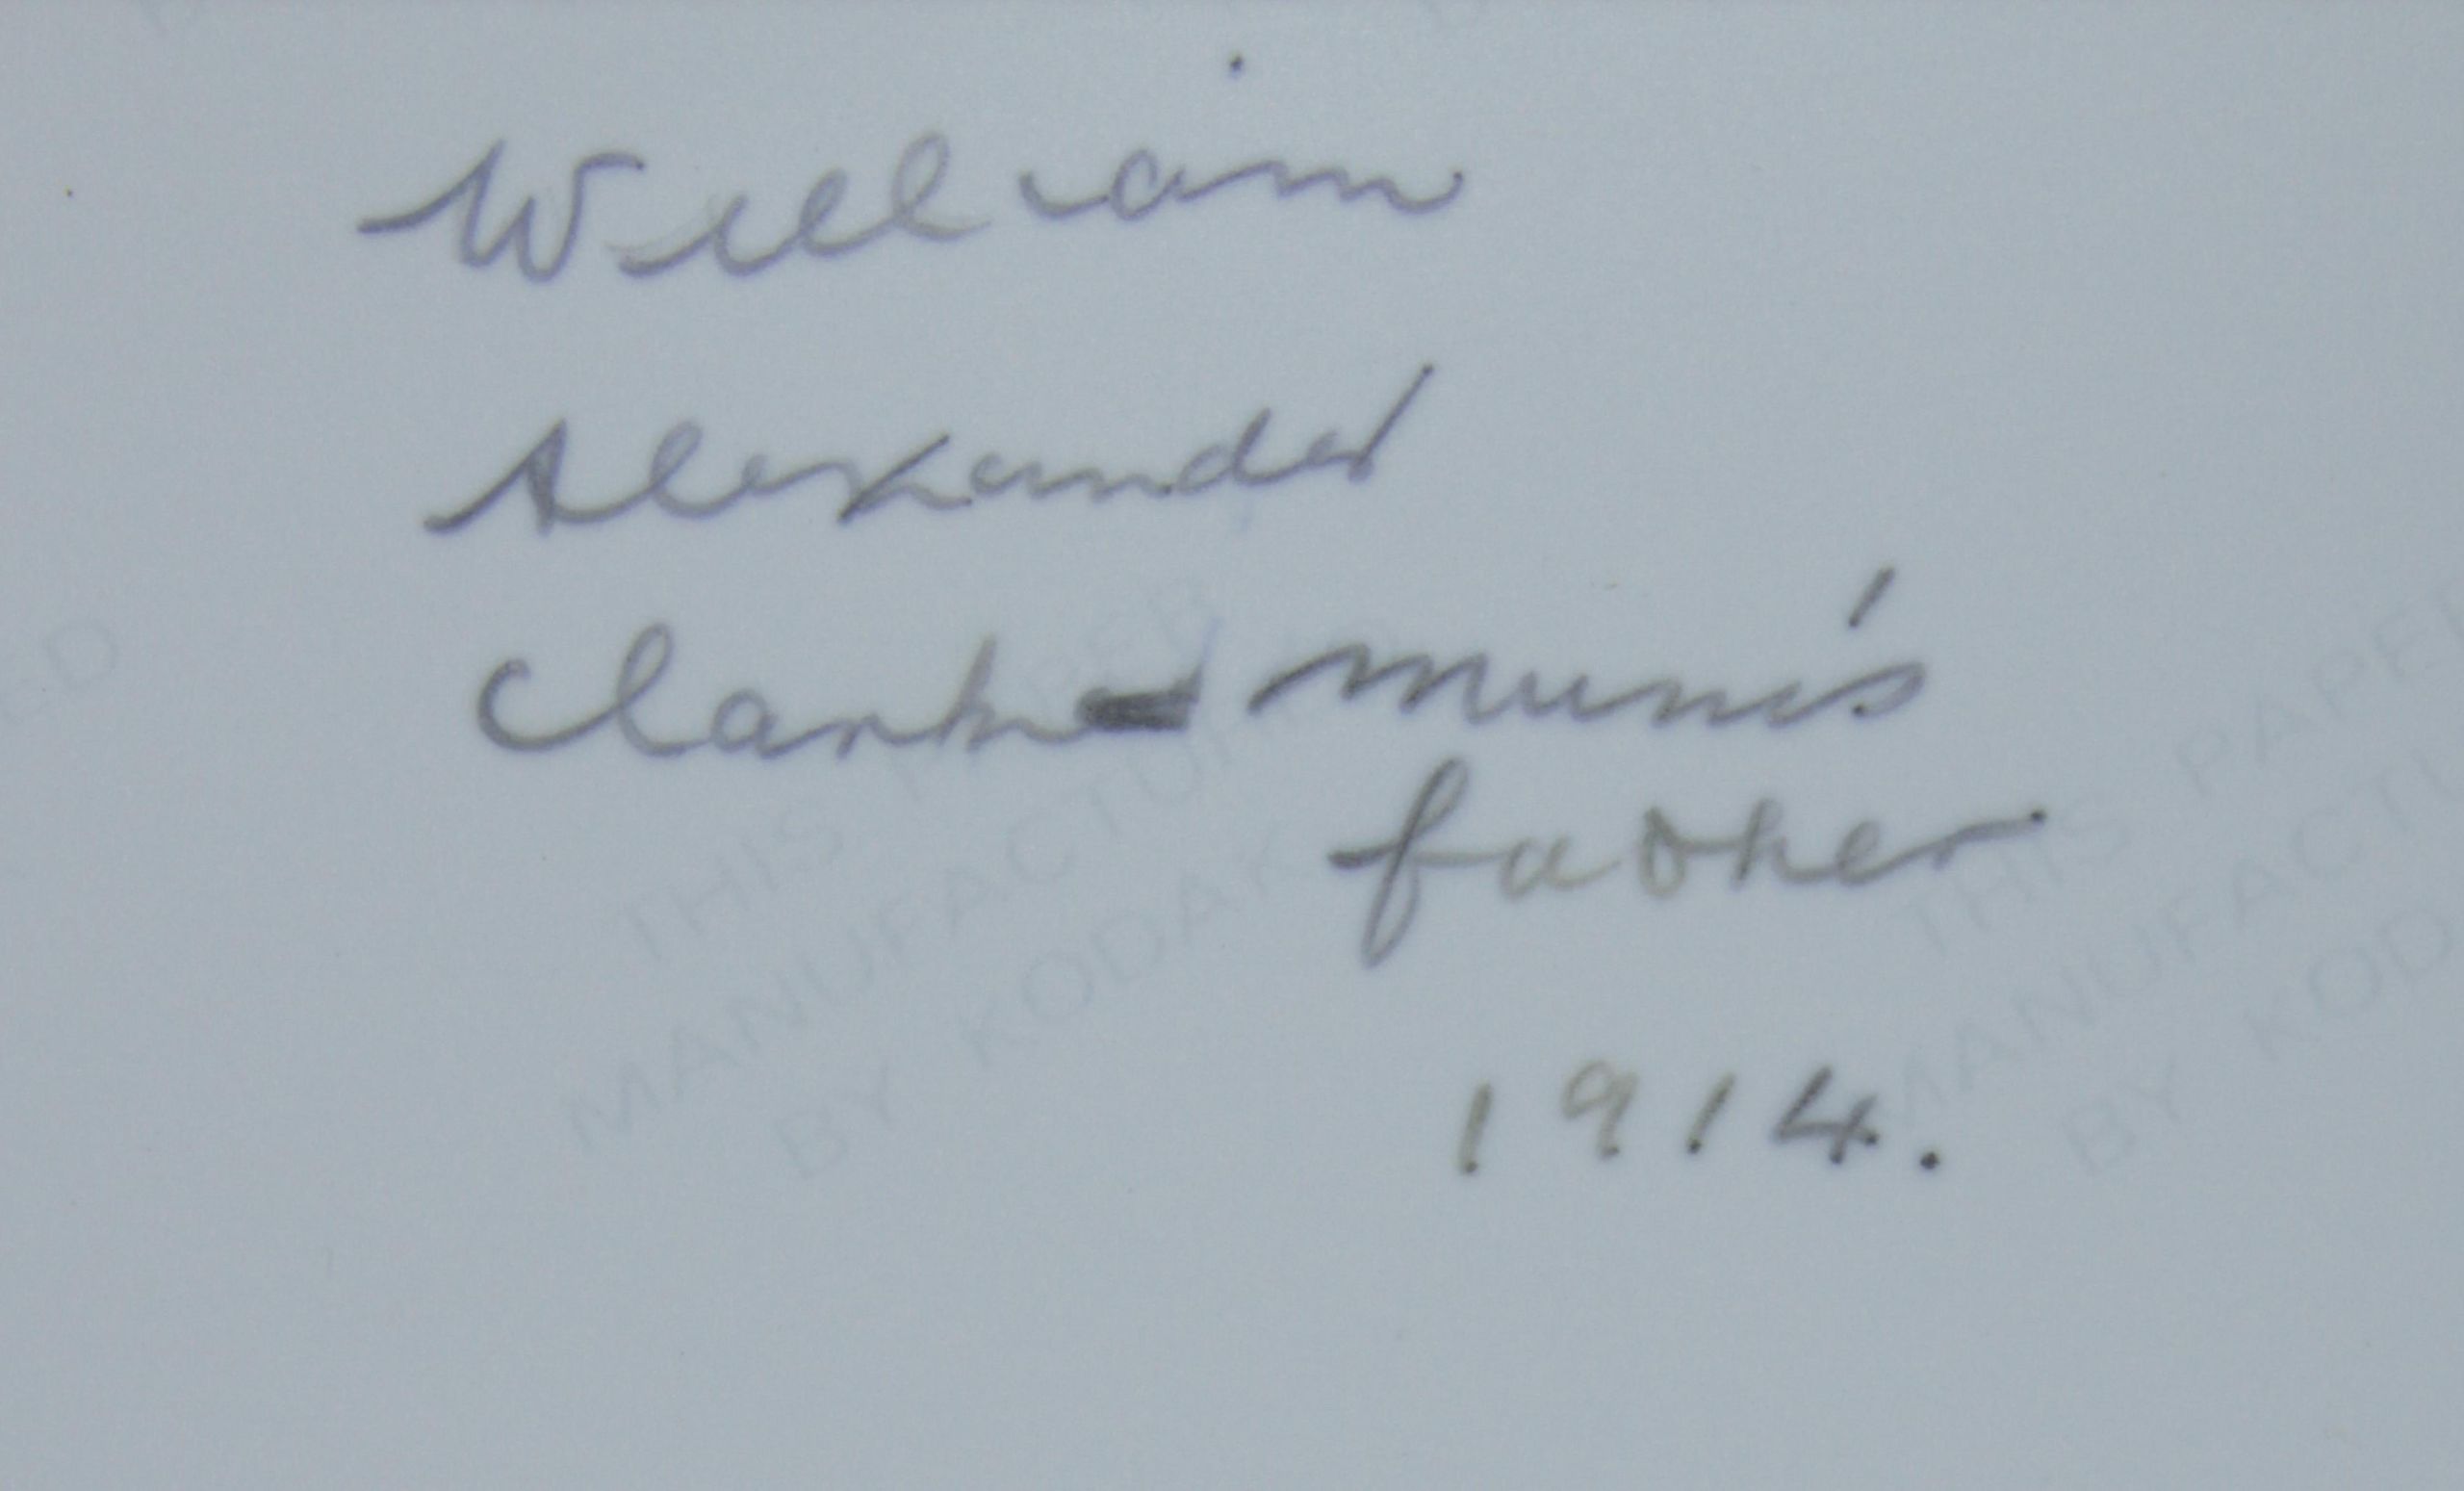 William
Alexander
Clark - mum's
father
1914.
THIS PAPER
MANUFACTURED
BY KODAK
THIS PAPE
MANUFACTU
BY KOD
ED